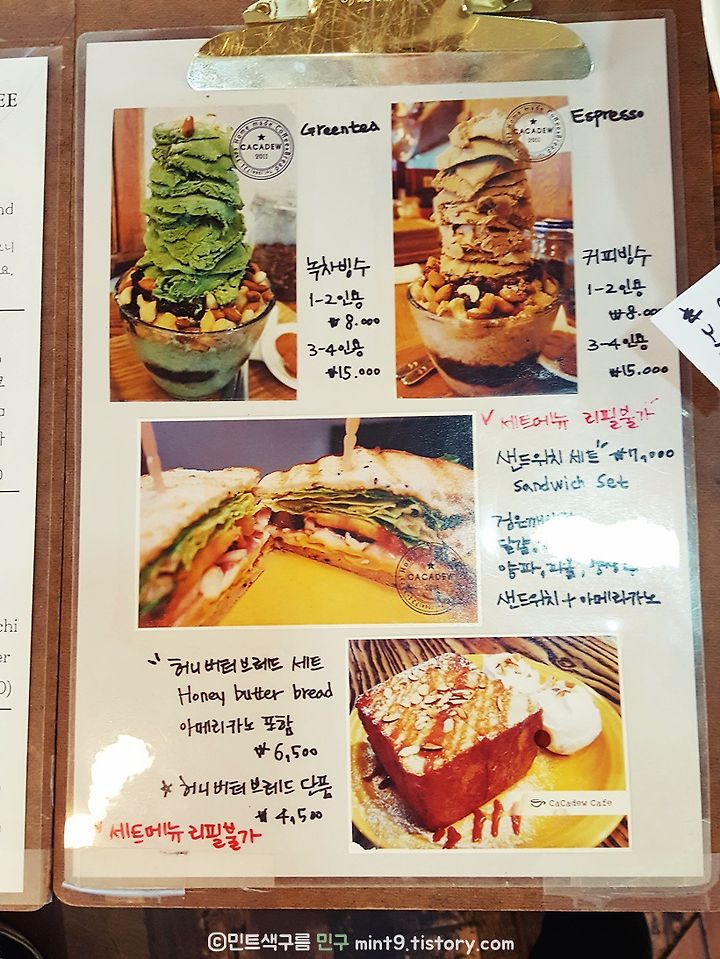 EE
nd
요.
chi
er
0)
Home made Coffee & Bread
CACADEW
2011
Greentea
녹차빙수
1-2인용
₩8.000
3-4인용
₩15.000
Home made Coffee & Bread
CACADEW
2011
Espresso
커피빙수
1-2인용
₩8.00
3-4인용
₩15.000
세트메뉴 리필불가
샌드위치 세트 ₩7,000
Sandwich Set
검은깨
달걀,
양파, 피클,
샌드위치 + 아메리카노
CACADEW
허니버터브레드 세트
Honey butter bread
아메리카노 포함
₩6,500
☆ 허니버터브레드 단품
₩4,500
세트메뉴 리필불가
CaCadew Cafe
ⓒ민트색구름 민구 mint9.tistory.com